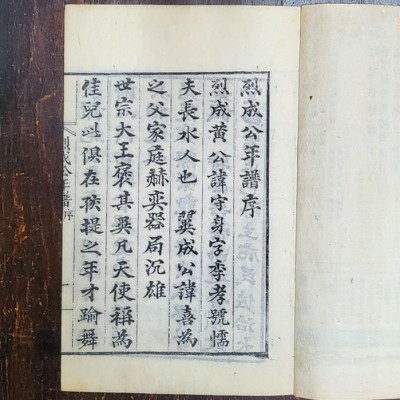 烈成公年譜序
烈成黃公諱守身字季孝號懦
夫長水人也 翼成公諱喜為
之父家庭赫奕器局沉雄
世宗大王褒其異凡天使稱為
佳兒以俱在孩提之年才踰舞
烈成公年譜序